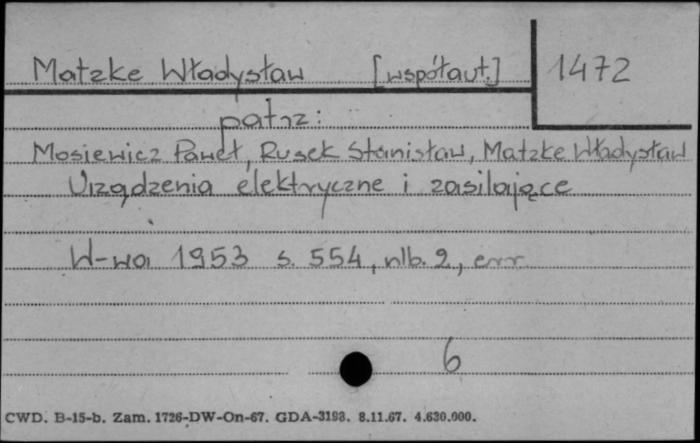 Matzke Władysław [współaut.] 1472
patrz:
Mosiewicz Paweł, Rusek Stanisław, Matzke Władysław
Urządzenia elektryczne i zasilające
W-wa 1953 s. 554, nlb. 2, err.
6
CWD. B-15-b. Zam. 1726-DW-On-67. GDA-3193. 8.11.67. 4.630.000.